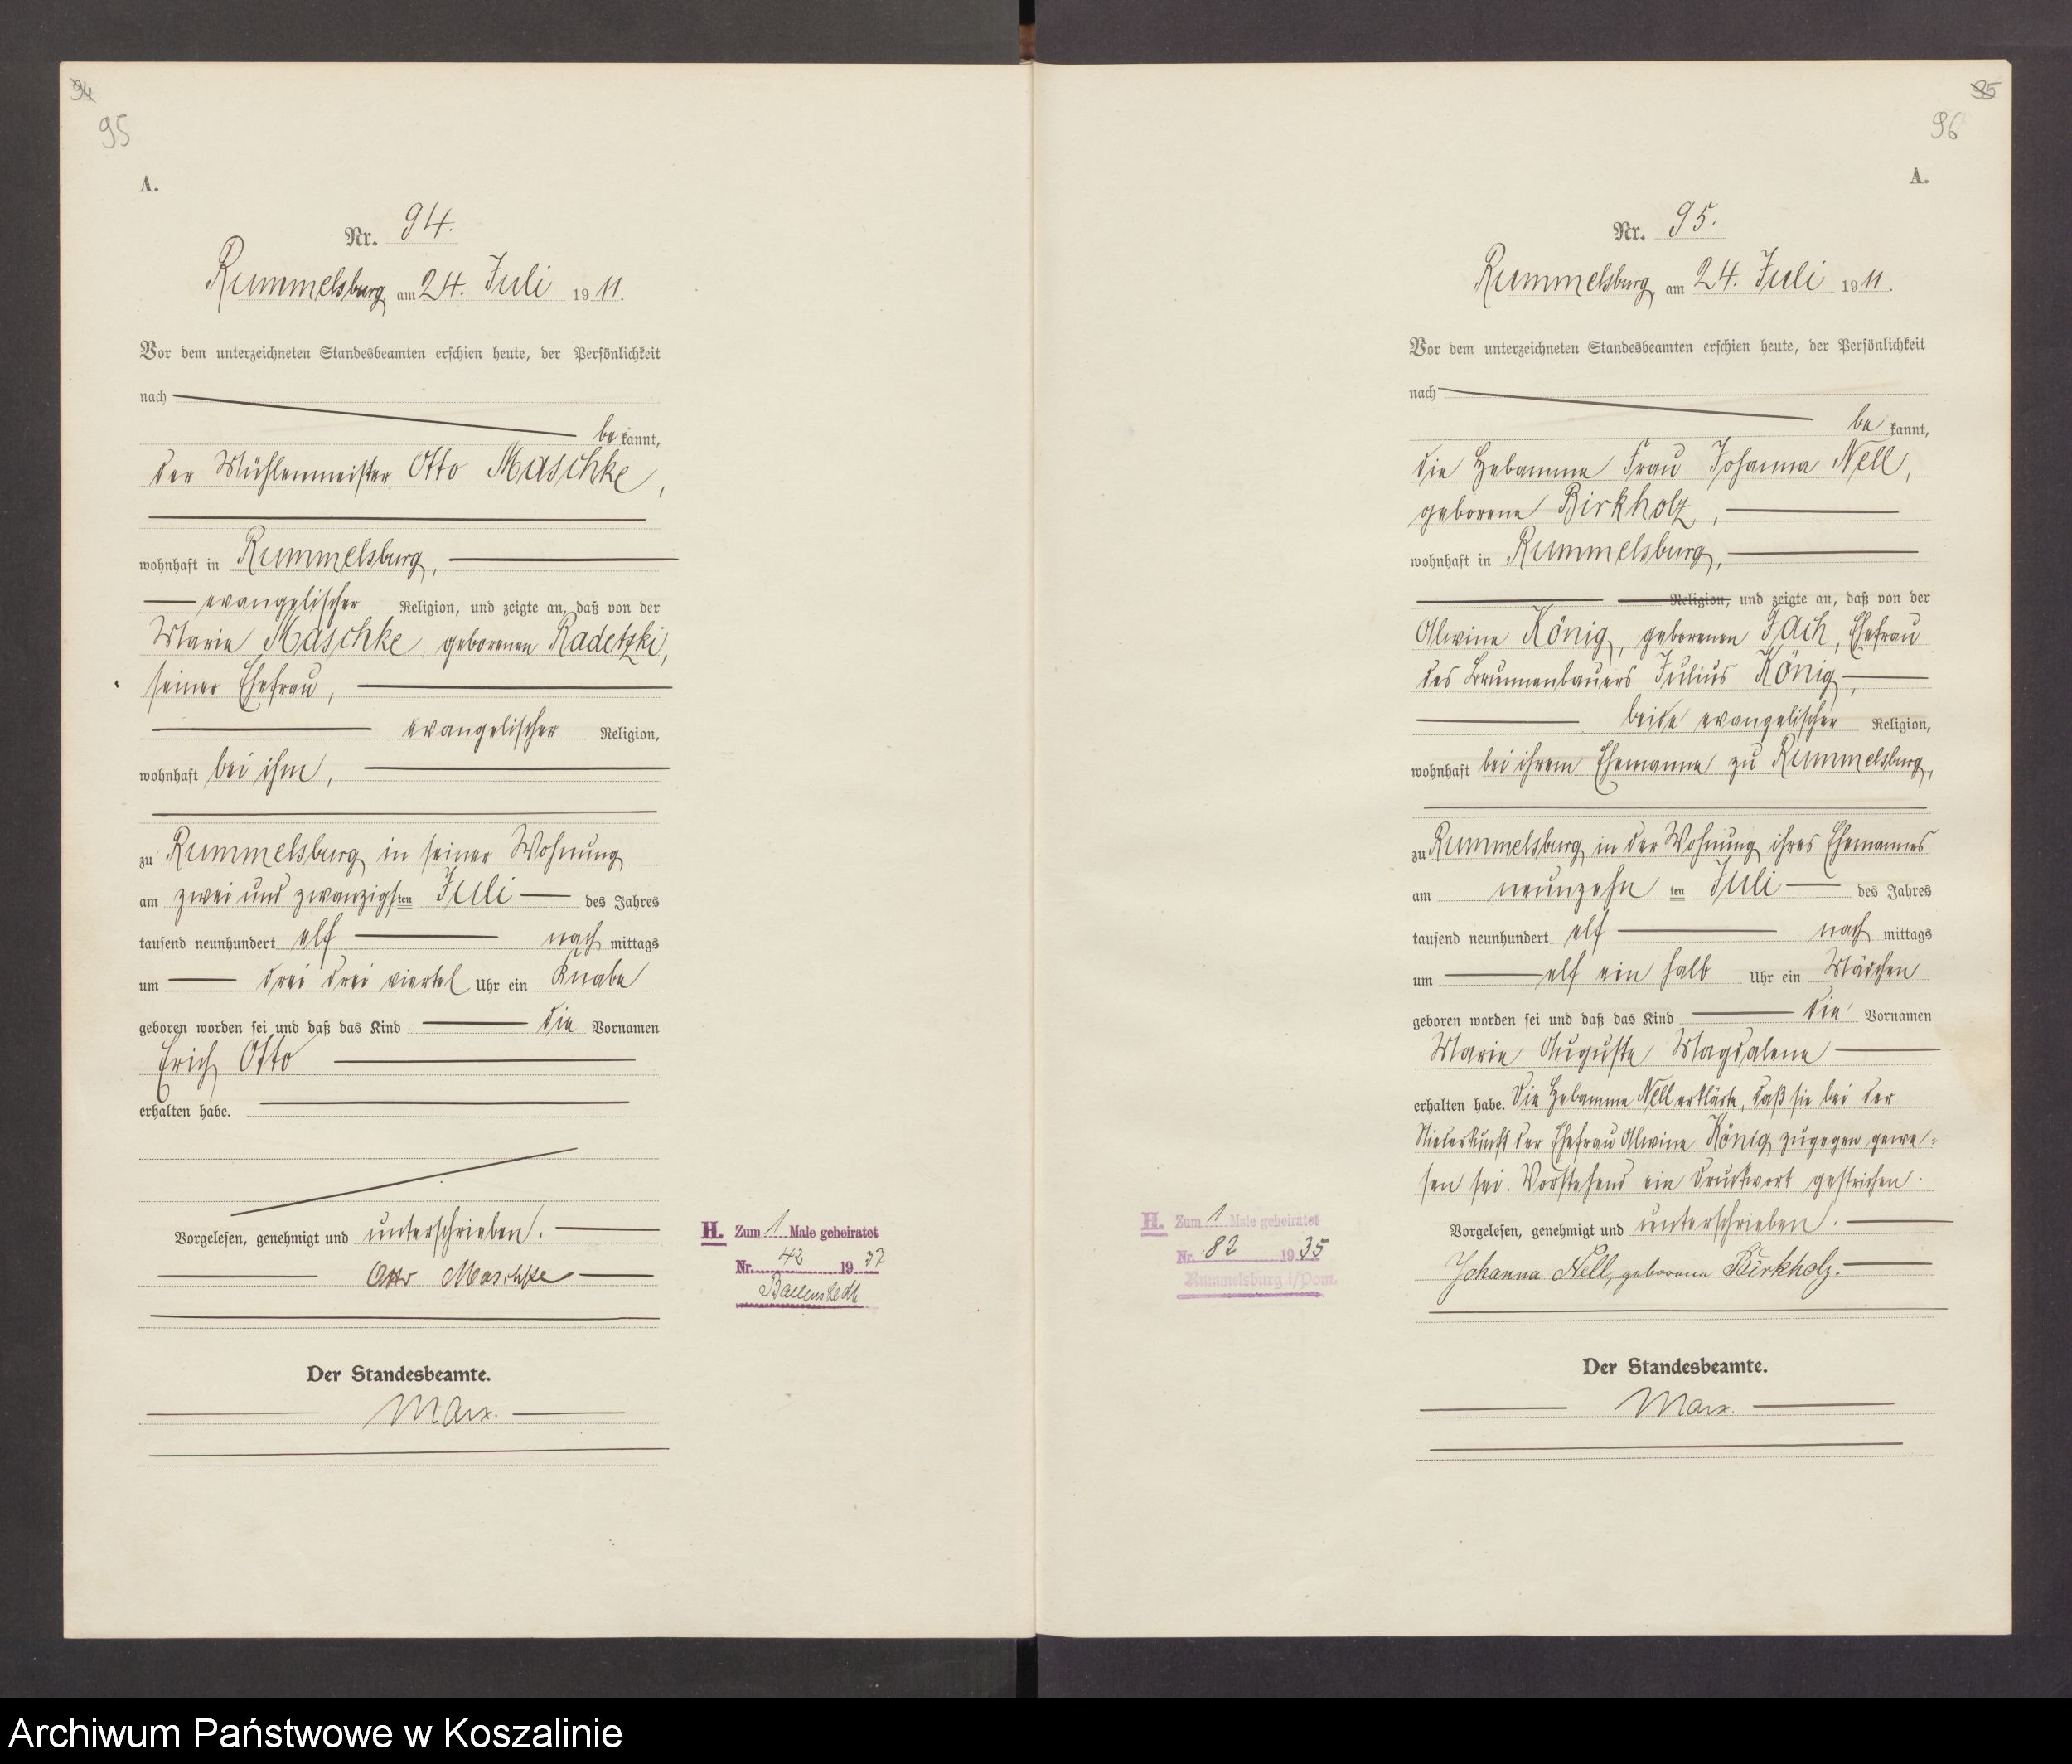 94
95
A.
Nr. 94.
Rummelsburg, am 24. Juli 1911.
Vor dem unterzeichneten Standesbeamten erschien heute, der Persönlichkeit
nach
bekannt,
der Mühlenmeister Otto Maschke,
wohnhaft in Rummelsburg,
evangelischer Religion, und zeigte an, daß von der
Marie Maschke, geborenen Radetzki,
seiner Ehefrau,
evangelischer Religion,
wohnhaft bei ihm,
zu Rummelsburg in seiner Wohnung
am zwei und zwanzigsten Juli des Jahres
tausend neunhundert elf nachmittags
um drei drei viertel Uhr ein Knabe
geboren worden sei und daß das Kind die Vornamen
Erich Otto
erhalten habe.
Vorgelesen, genehmigt und unterschrieben.
Otto Maschke
Der Standesbeamte.
Marx.
H. Zum 1 Male geheiratet
Nr. 42 1937
Ballenstedt
95
96
A.
Nr. 95.
Rummelsburg, am 24. Juli 1911.
Vor dem unterzeichneten Standesbeamten erschien heute, der Persönlichkeit
nach
bekannt,
die Hebamme Frau Johanna Nell,
geborene Birkholz,
wohnhaft in Rummelsburg,
Religion, und zeigte an, daß von der
Alwine König, geborenen Jach, Ehefrau
des Brunnenbauers Julius König,
beide evangelischer Religion,
wohnhaft bei ihrem Ehemanne zu Rummelsburg,
zu Rummelsburg in der Wohnung ihres Ehemannes
am neunzehnten Juli des Jahres
tausend neunhundert elf nachmittags
um elf ein halb Uhr ein Mädchen
geboren worden sei und daß das Kind die Vornamen
Marie Auguste Magdalene
erhalten habe. Die Hebamme Nell erklärte, daß sie bei der
Niederkunft der Ehefrau Alwine König zugegen gewe-
sen sei. Vorstehend ein Druckwort gestrichen.
Vorgelesen, genehmigt und unterschrieben.
Johanna Nell, geborene Birkholz.
Der Standesbeamte.
Marx.
H. Zum 1 Male geheiratet
Nr. 82 1935
Rummelsburg i/Pom.
Archiwum Państwowe w Koszalinie